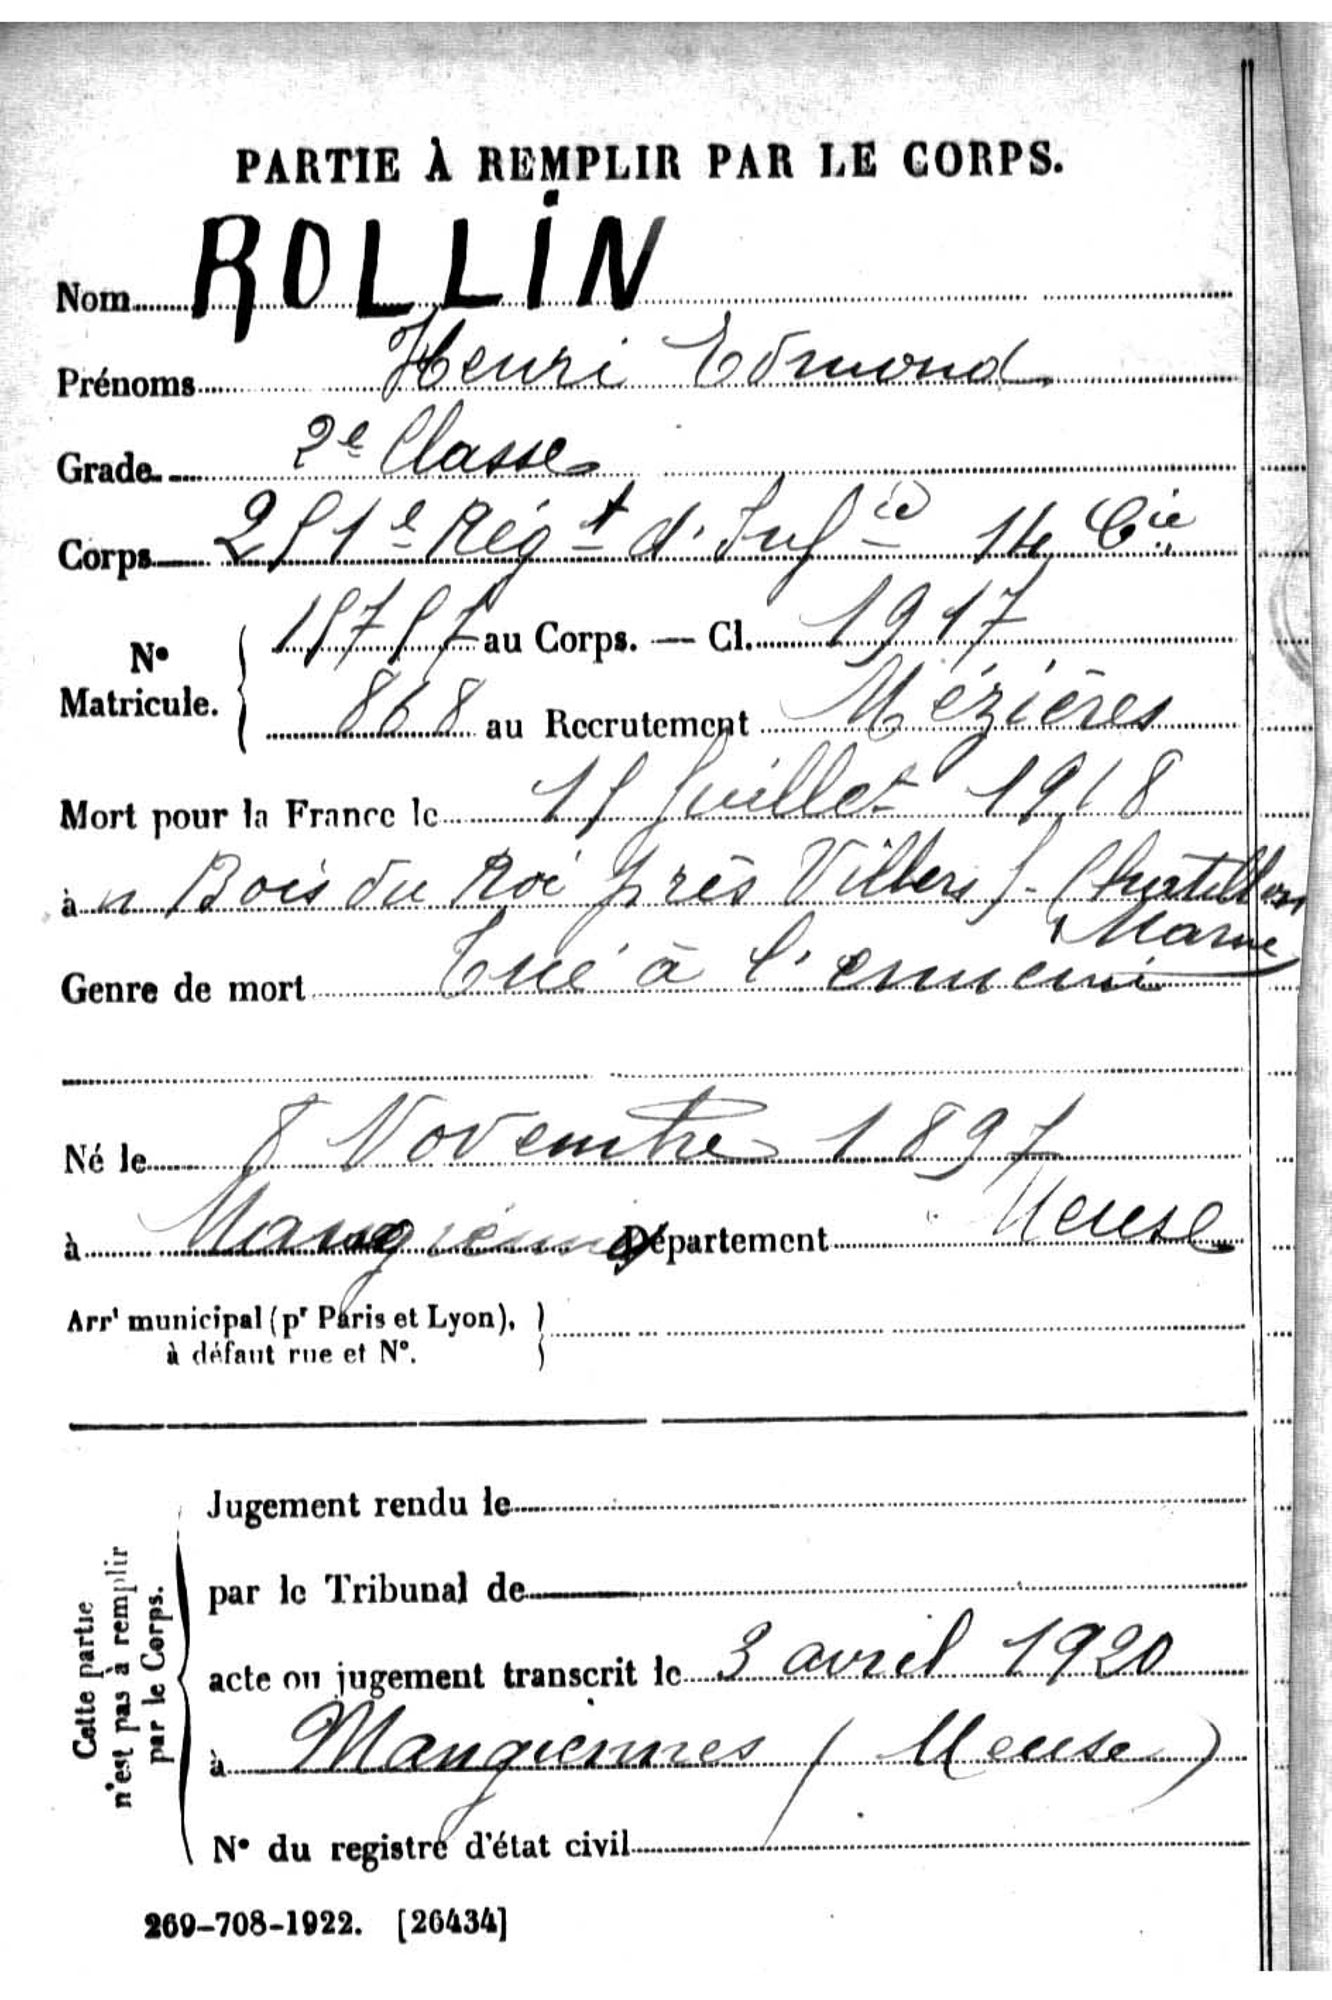 PARTIE À REMPLIR PAR LE CORPS.
Nom ROLLIN
Prénoms Henri Edmond
Grade 2e Classe
Corps 251e Régt d'Infie 14 Cie
No Matricule. 15757 au Corps. — Cl. 1917
868 au Recrutement Mézières
Mort pour la France le 15 Juillet 1918
à Bois du Roi près Villers s- Chatillon
Marne
Genre de mort Tué à l'ennemi
Né le 8 Novembre 1897
à Mangiennes Département Meuse
Arrt municipal (pr Paris et Lyon),
à défaut rue et No.
Jugement rendu le
par le Tribunal de
acte ou jugement transcrit le 3 avril 1920
à Mangiennes (Meuse)
No du registre d'état civil
Cette partie
n'est pas à remplir
par le Corps.
269-708-1922. [26434]